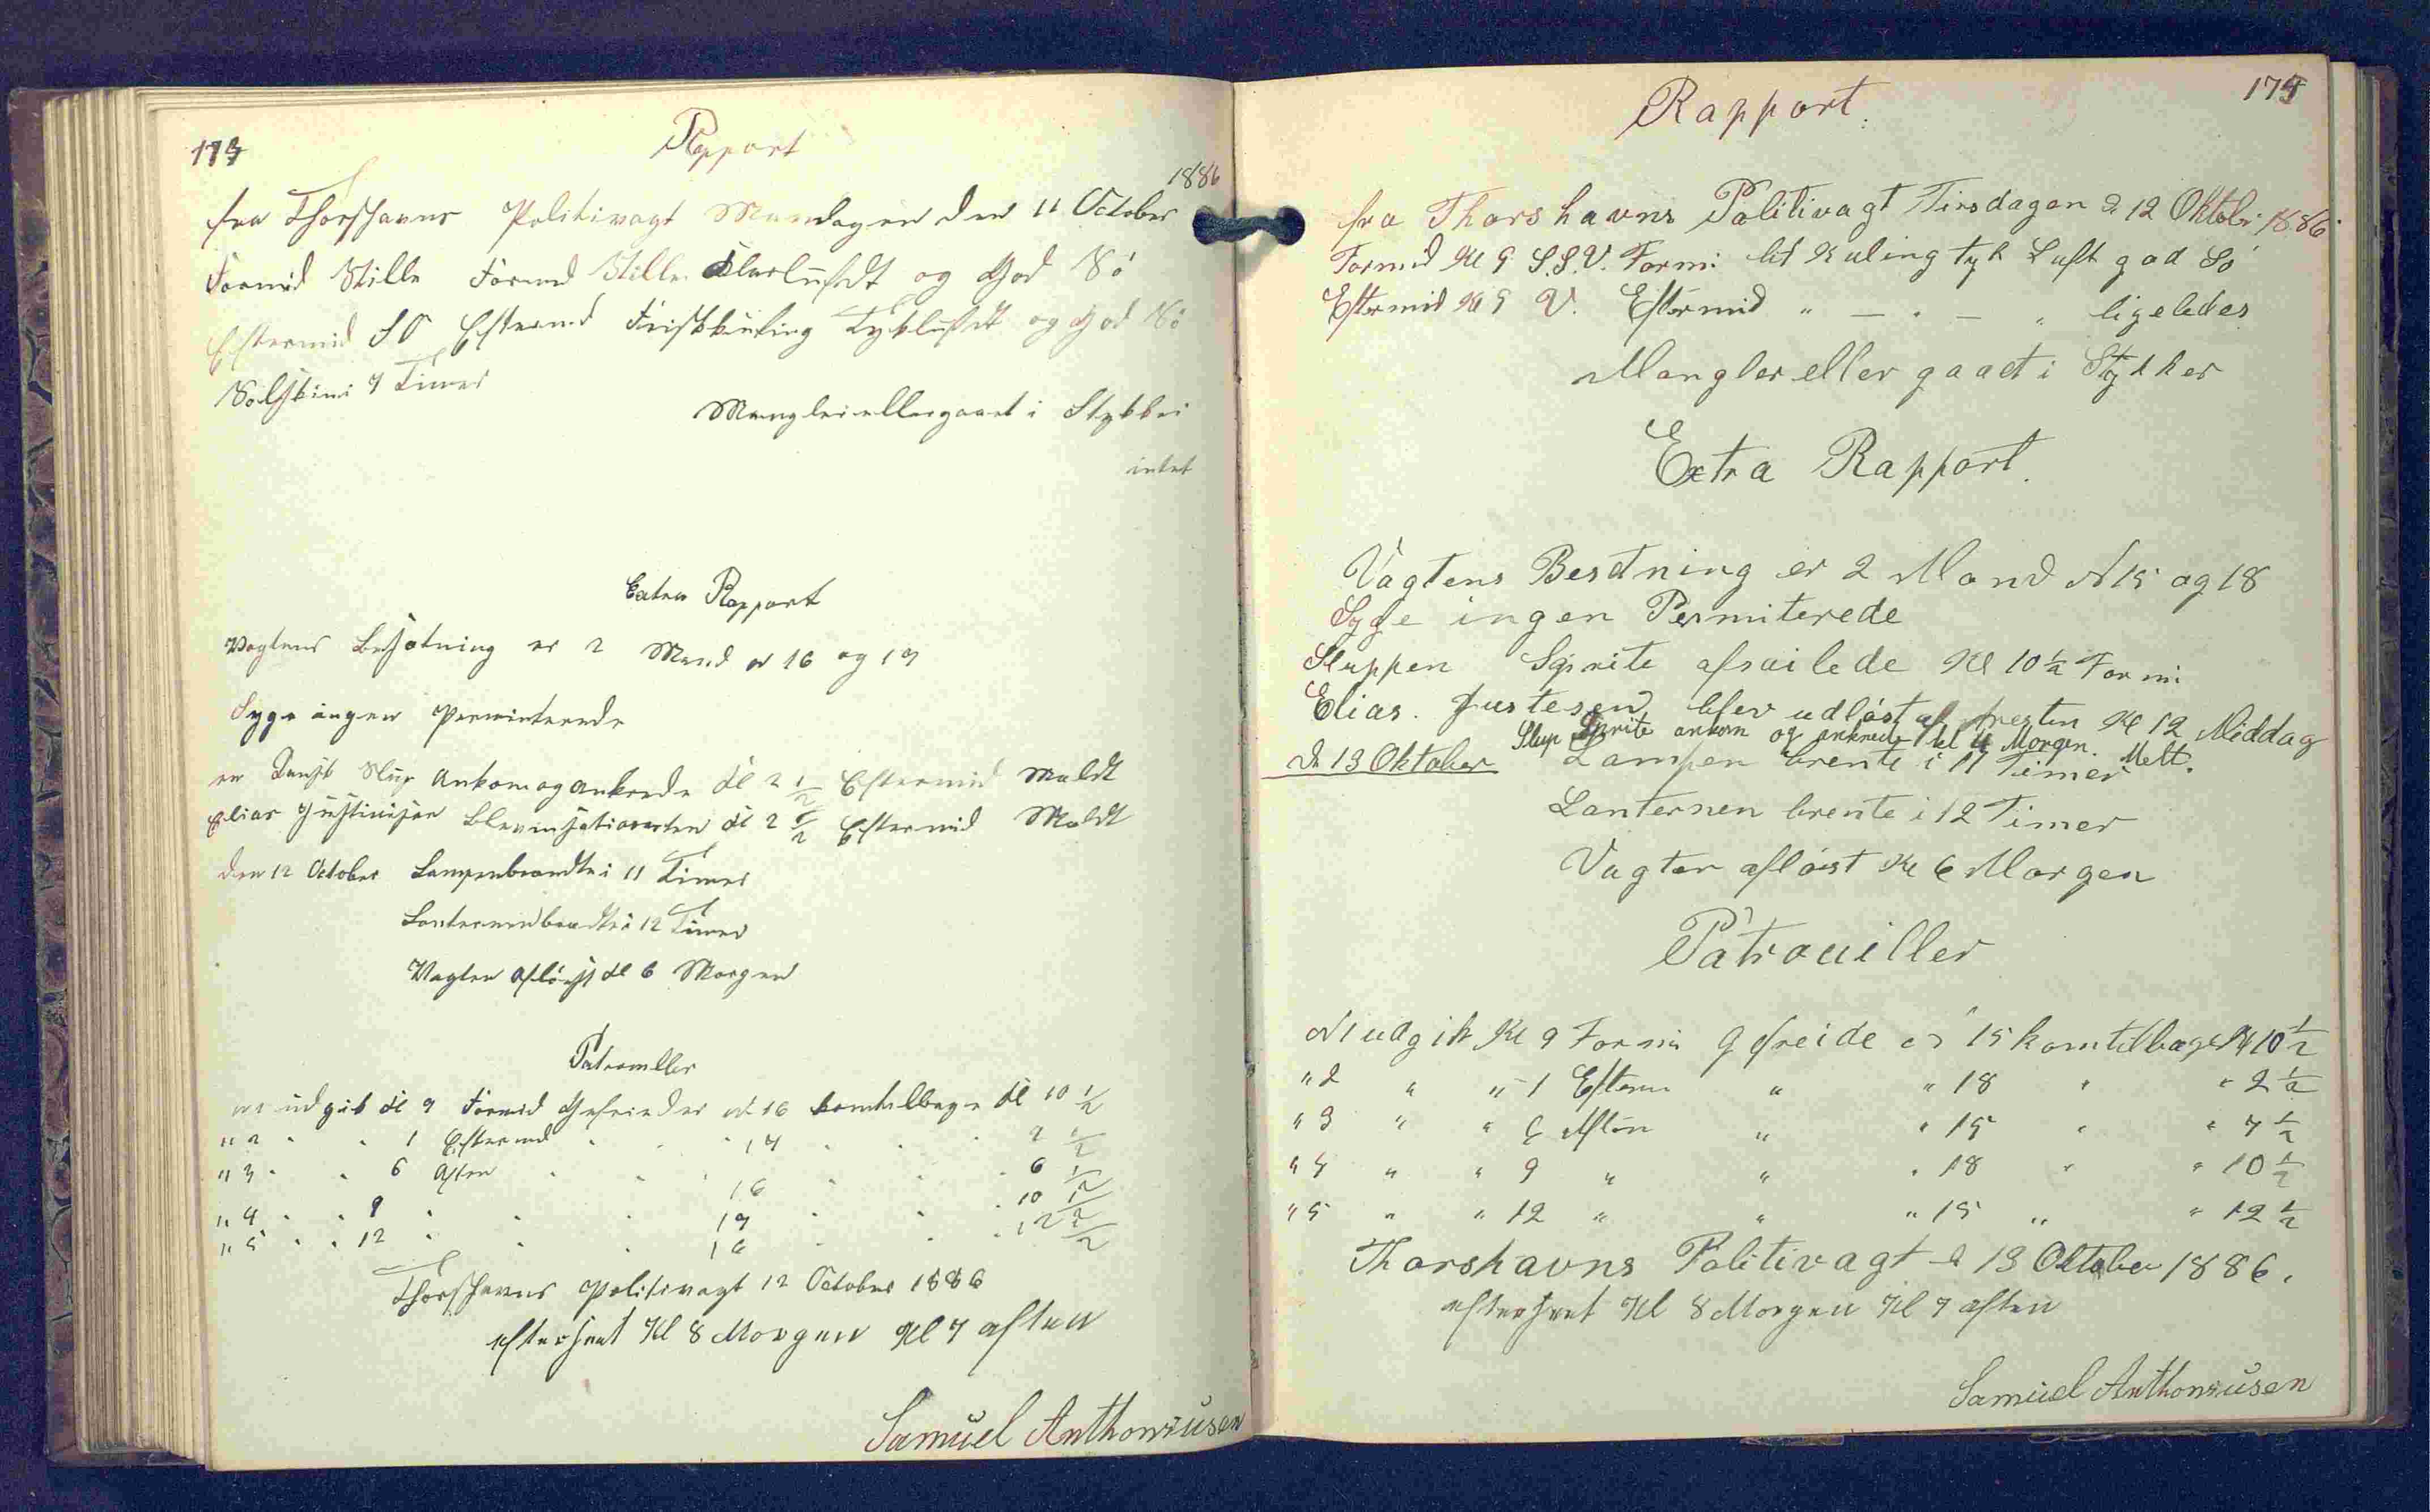 173
Rapport
1886
fra Thorshavns Politivagt Mandagen den 11 October
Formid Stille Formd Stille Klarlufdt og God Sö
Eftermid SO Eftermd Friskkuling Tyklufdt og God Sö
Solskin i 7 Timer
Mangler eller gaaet i Stykker
intet
Extra Rapport
Vagtens Besætning er 2 Mand № 16 og 17
Syge ingen Perminterede
en Dansk Slup Ankom og ankrede Kl 2 1/2 Eftermid Meldt
Elias Justinisen Blev insat i aresten Kl 2 1/2 Eftermid Meldt
Den 12 October Lampen brendte i 11 Timer
Lanternen brendte i 12 Timer
Vagten aflöst Kl 6 Morgen
Patrouller
№ 1 udgik Kl 9 Formid Gefreider № 16 kom tilbage Kl 10 1/2
" 2 " " 1 Eftermd " " " 17 " " " 2 1/2
" 3 " " 6 Aften " " " 16 " " " 6 1/2
" 4 " " 9 " " " 17 " " " 10 1/2
" 5 " " 12 " " " 16 " " " 12 1/2
Thorshavns Politivagt 12 October 1886
efterseet Kl 8 Morgen Kl 7 aften
Samuel Anthoniusen
174
Rapport.
fra Thorshavns Politivagt Tirsdagen d 12 Oktobr 1886.
Formid Kl 9 S.S.V. Formi: lit Kuling tyk Luft god Sö
Eftermid Kl 9 V. Eftermid " — " — " ligeledes
Mangler eller gaaet i Stykker
Extra Rapport.
Vagtens Besetning er 2 Mand № 15 og 18
Syge ingen Permiterede
Sluppen Sprite afseilede Kl 10 1/2 Formi
Elias. Justesen blev udlöst af aresten Kl 12 Middag
Slup Sprite ankom og ankrede Kl 4 Morgen. Melt.
d 13 Oktober Lampen brente i 11 Timer
Lanternen brente i 12 Timer
Vagten aflöst Kl 6 Morgen
Patrouiller
№ 1 udgik Kl 9 Formi Gefreide № 15 kom tilbage Kl 10 1/2
" 2 " " 1 Efterm " " 18 " " 2 1/2
" 3 " " 6 Aften " " 15 " " 7 1/2
" 4 " " 9 " " " 18 " " 10 1/2
" 5 " " 12 " " " 15 " " 12 1/2
Thorshavns Politivagt d 13 Oktober 1886.
efterseet Kl 8 Morgen Kl 7 aften
Samuel Anthoniusen